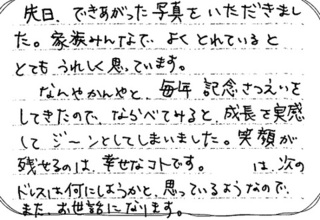 先日、できあがった写真をいただきまし
た。家族みんなで よくとれていると
とてもうれしく思っています。
なんやかんやと、毎年 記念さつえいを
してきたので、ならべてみると、成長を実感
して ジ〜ンとしてしまいました。笑顔が
残せるのは、幸せなコトです。 は 次の
ドレスは何にしようかと、思っているようなので、
また、お世話になります。